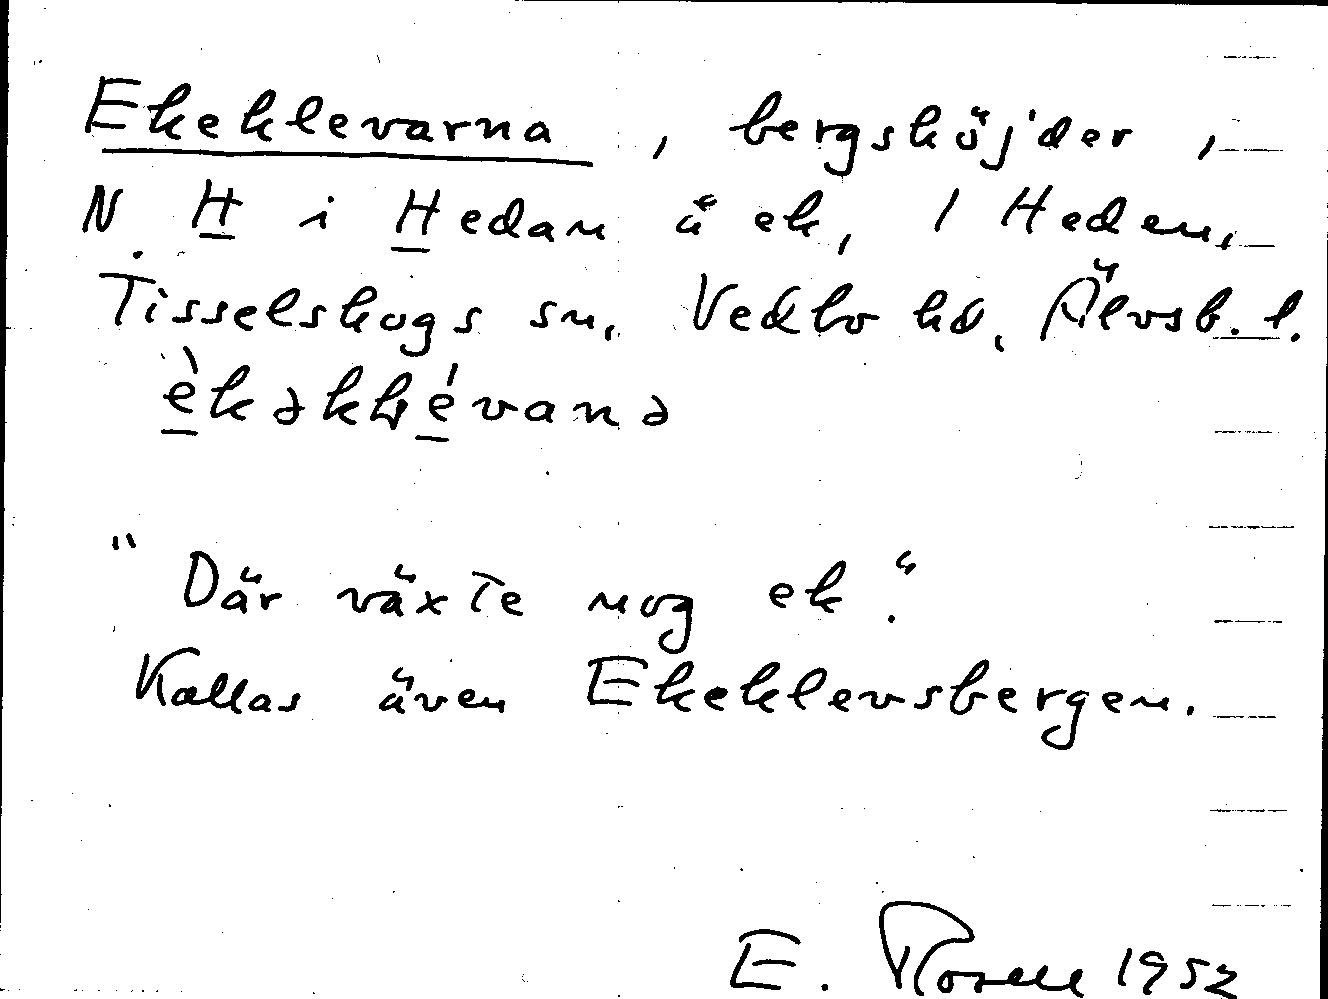 Ekeklevarna, bergshöjder,
N. H i Hedan å ek, 1 Heden,
Tisselskogs sn, Vedbo hd, Älvsb. l.
"Där växte nog ek."
Kallas även Ekeklevsbergen.
E. Rosell 1952